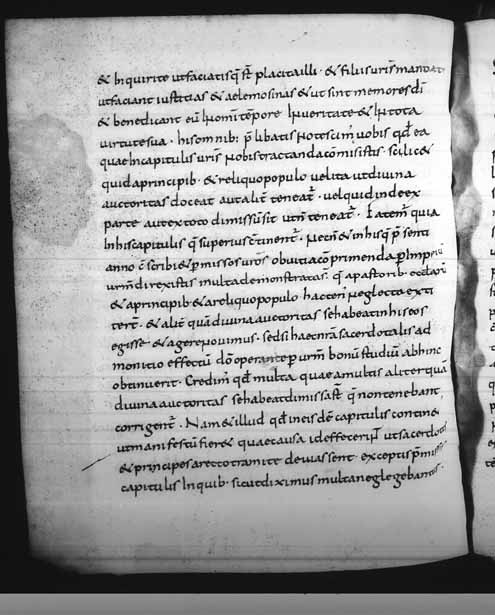 & inquirite ut faciatis q̄ s̄t placita illi · & filiis ur̄is mandat
ut faciant iustitias & aelemosinas & ut sint memores dī
& benedicant eū in omi tēpore in ueritate & in tota
uirtute sua · his omnib: p̄libatis potescim uobis qd̄ ea
quae in capitulis ur̄is nobis tractanda cōmisistis · scilic&
quid a principib · & reliquo populo uel ita ut diuina
auctoritas doceat aut alit̄ teneat̄ · uel quid inde ex
parte aut ex toto dimissū sit ut n̄ teneat̄ · Fatem̄ quia
In his capitulis q̄ superius c̄tinent̄ · nec n̄ & in his q̄ p̄senti
anno c̄scribi & p missos ur̄os obuitia cōprimenda p impriū
urm̄ direxistis multa demonstratas̄ · q̄ a pastorib · ecclaꝝ
& a principib · & a reliquo populo hacten neglecta exti
ter̄ · & alit̄ quā diuina auctoritas se habeat in his eos
egisse & agere nouimus · sed si haec nr̄a sacerdotalis ad
monitio effectū dō operante p urm̄ bonū studiū abhinc
obtinuerit · Credim̄ qd̄ multa quae a multis aliter quā
diuina auctoritas se habeat dimissa s̄t q̄ non tenebant,
corrigent̄ · Nam & illud qd̄ in eisdē capitulis contine
ut manifestū fier& quae causa id effecerit ut sacerdotes
& principes a recto tramite deuiassent · exceptis p̄missis
capitulis In quib · sicut diximus multa neglegebant ·